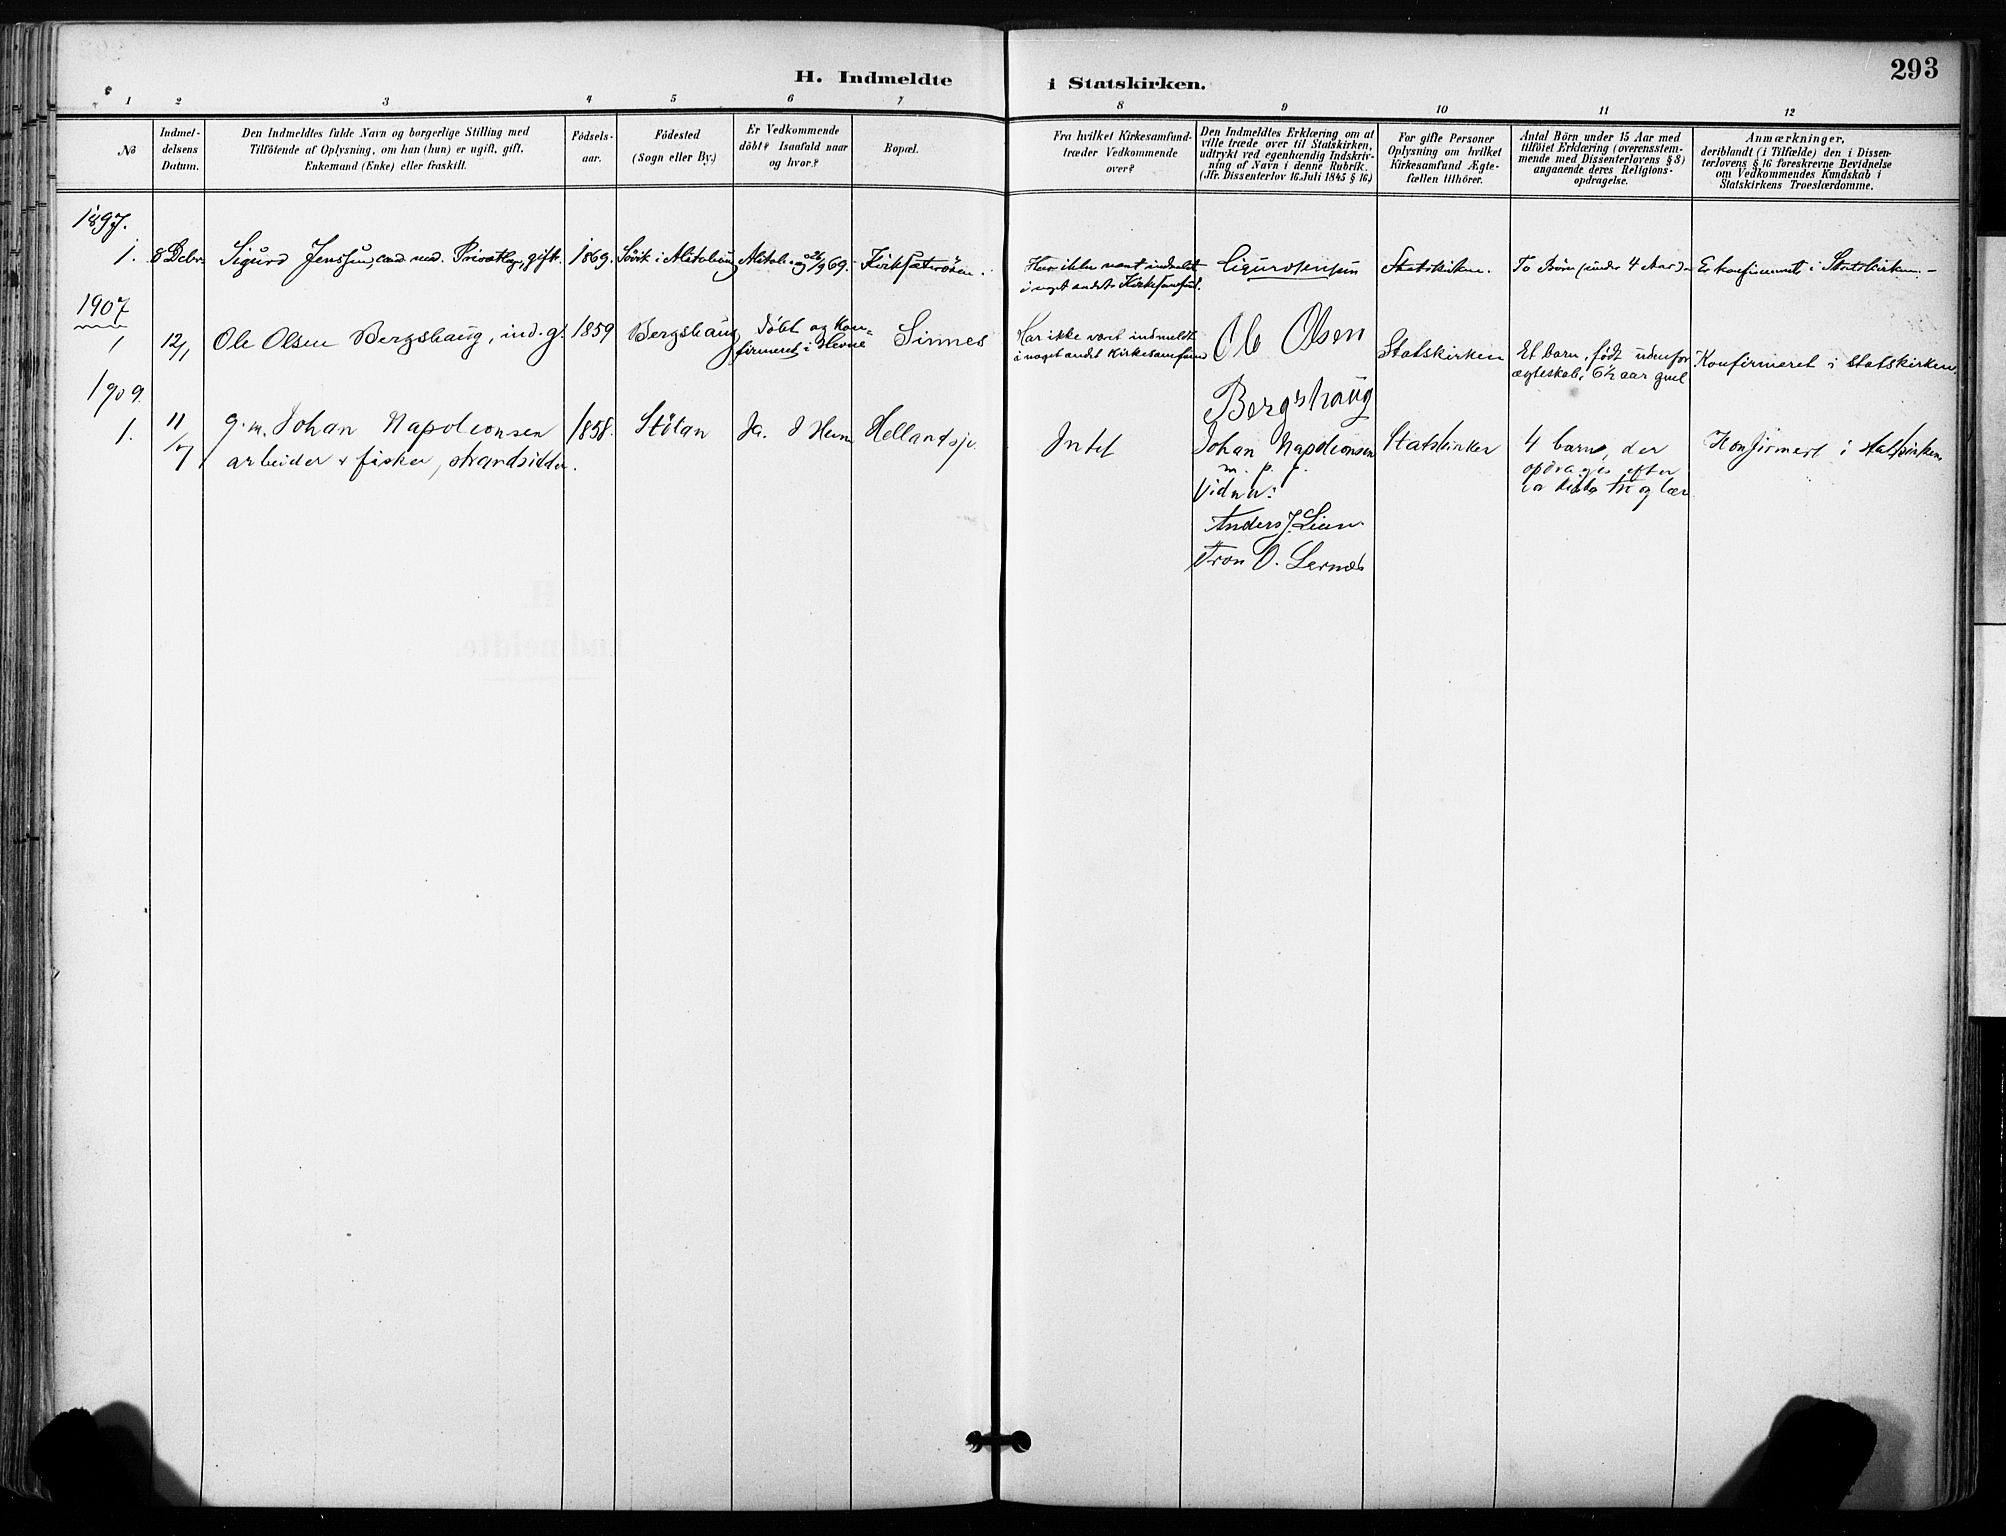 293
H. Indmeldte i Statskirken.
1 2 3 4 5 6 7 8 9 10 11 12
No
Indmel-
delsens
Datum.
Den Indmeldtes fulde Navn og borgerlige Stilling med
Tilföiende af Oplysning, om han (hun) er ugift, gift,
Enkemand (Enke) eller fraskilt.
Födsels-
aar.
Födested
(Sogn eller By.)
Er Vedkommende
döbt? Isaafald naar
og hvor?
Bopæl.
Fra hvilket Kirkesamfund
træder Vedkommende
over?
Den Indmeldtes Erklæring om at
ville træde over til Statskirken,
udtrykt ved egenhændig Indskriv-
ning af Navn i denne Rubrik.
(Jfr. Dissenterlov 16. Juli 1845 § 16.)
For gifte Personer
Oplysning om hvilket
Kirkesamfund Ægte-
fællen tilhörer.
Antal Börn under 15 Aar med
tilföiet Erklæring (overensstem-
mende med Dissenterlovens § 8)
angaaende deres Religions-
opdragelse.
Anmærkninger,
deriblandt (i Tilfælde) den i Dissen-
terlovens § 16 foreskrevne Bevidnelse
om Vedkommendes Kundskab i
Statskirkens Troeslærdomme.
1897.
1.
8 Decbr.
Sigurd Jenssen, cand. med. Privatlæge, gift.
1869.
i Alstahaug
Alstah. 69.
Kirksæterören.
Har ikke været indmeldt
i noget andet Kirkesamfund.
Sigurd Jenssen
Statskirken.
To Börn (under 4 Aar)
Er konfirmeret i Statskirken.
1907
1
12/1
Ole Olsen Bergshaug, ind. g.
1859
Bergshaug
Döbt og kon-
firmeret i Hevne
Sinnes
Har ikke været indmeldt
i noget andet kirkesamfund
Ole Olsen
Bergshaug
Statskirken
Et barn, födt udenfor
ægteskab, 6½ aar gml
Konfirmeret i statskirken.
1909.
1.
11/7
g.m. Johan Napoleonsen
arbeider & fisker, strandsidder.
1858.
Stölan
Ja. I Hevne
Hellandsjö
Intet
Johan Napoleonsen
m. p. p.
Vidner:
Anders J. Lien
Tron O. Lernes
Statskirken
4 barn, der
opdrages efter
og lær
Konfirmert i statskirken